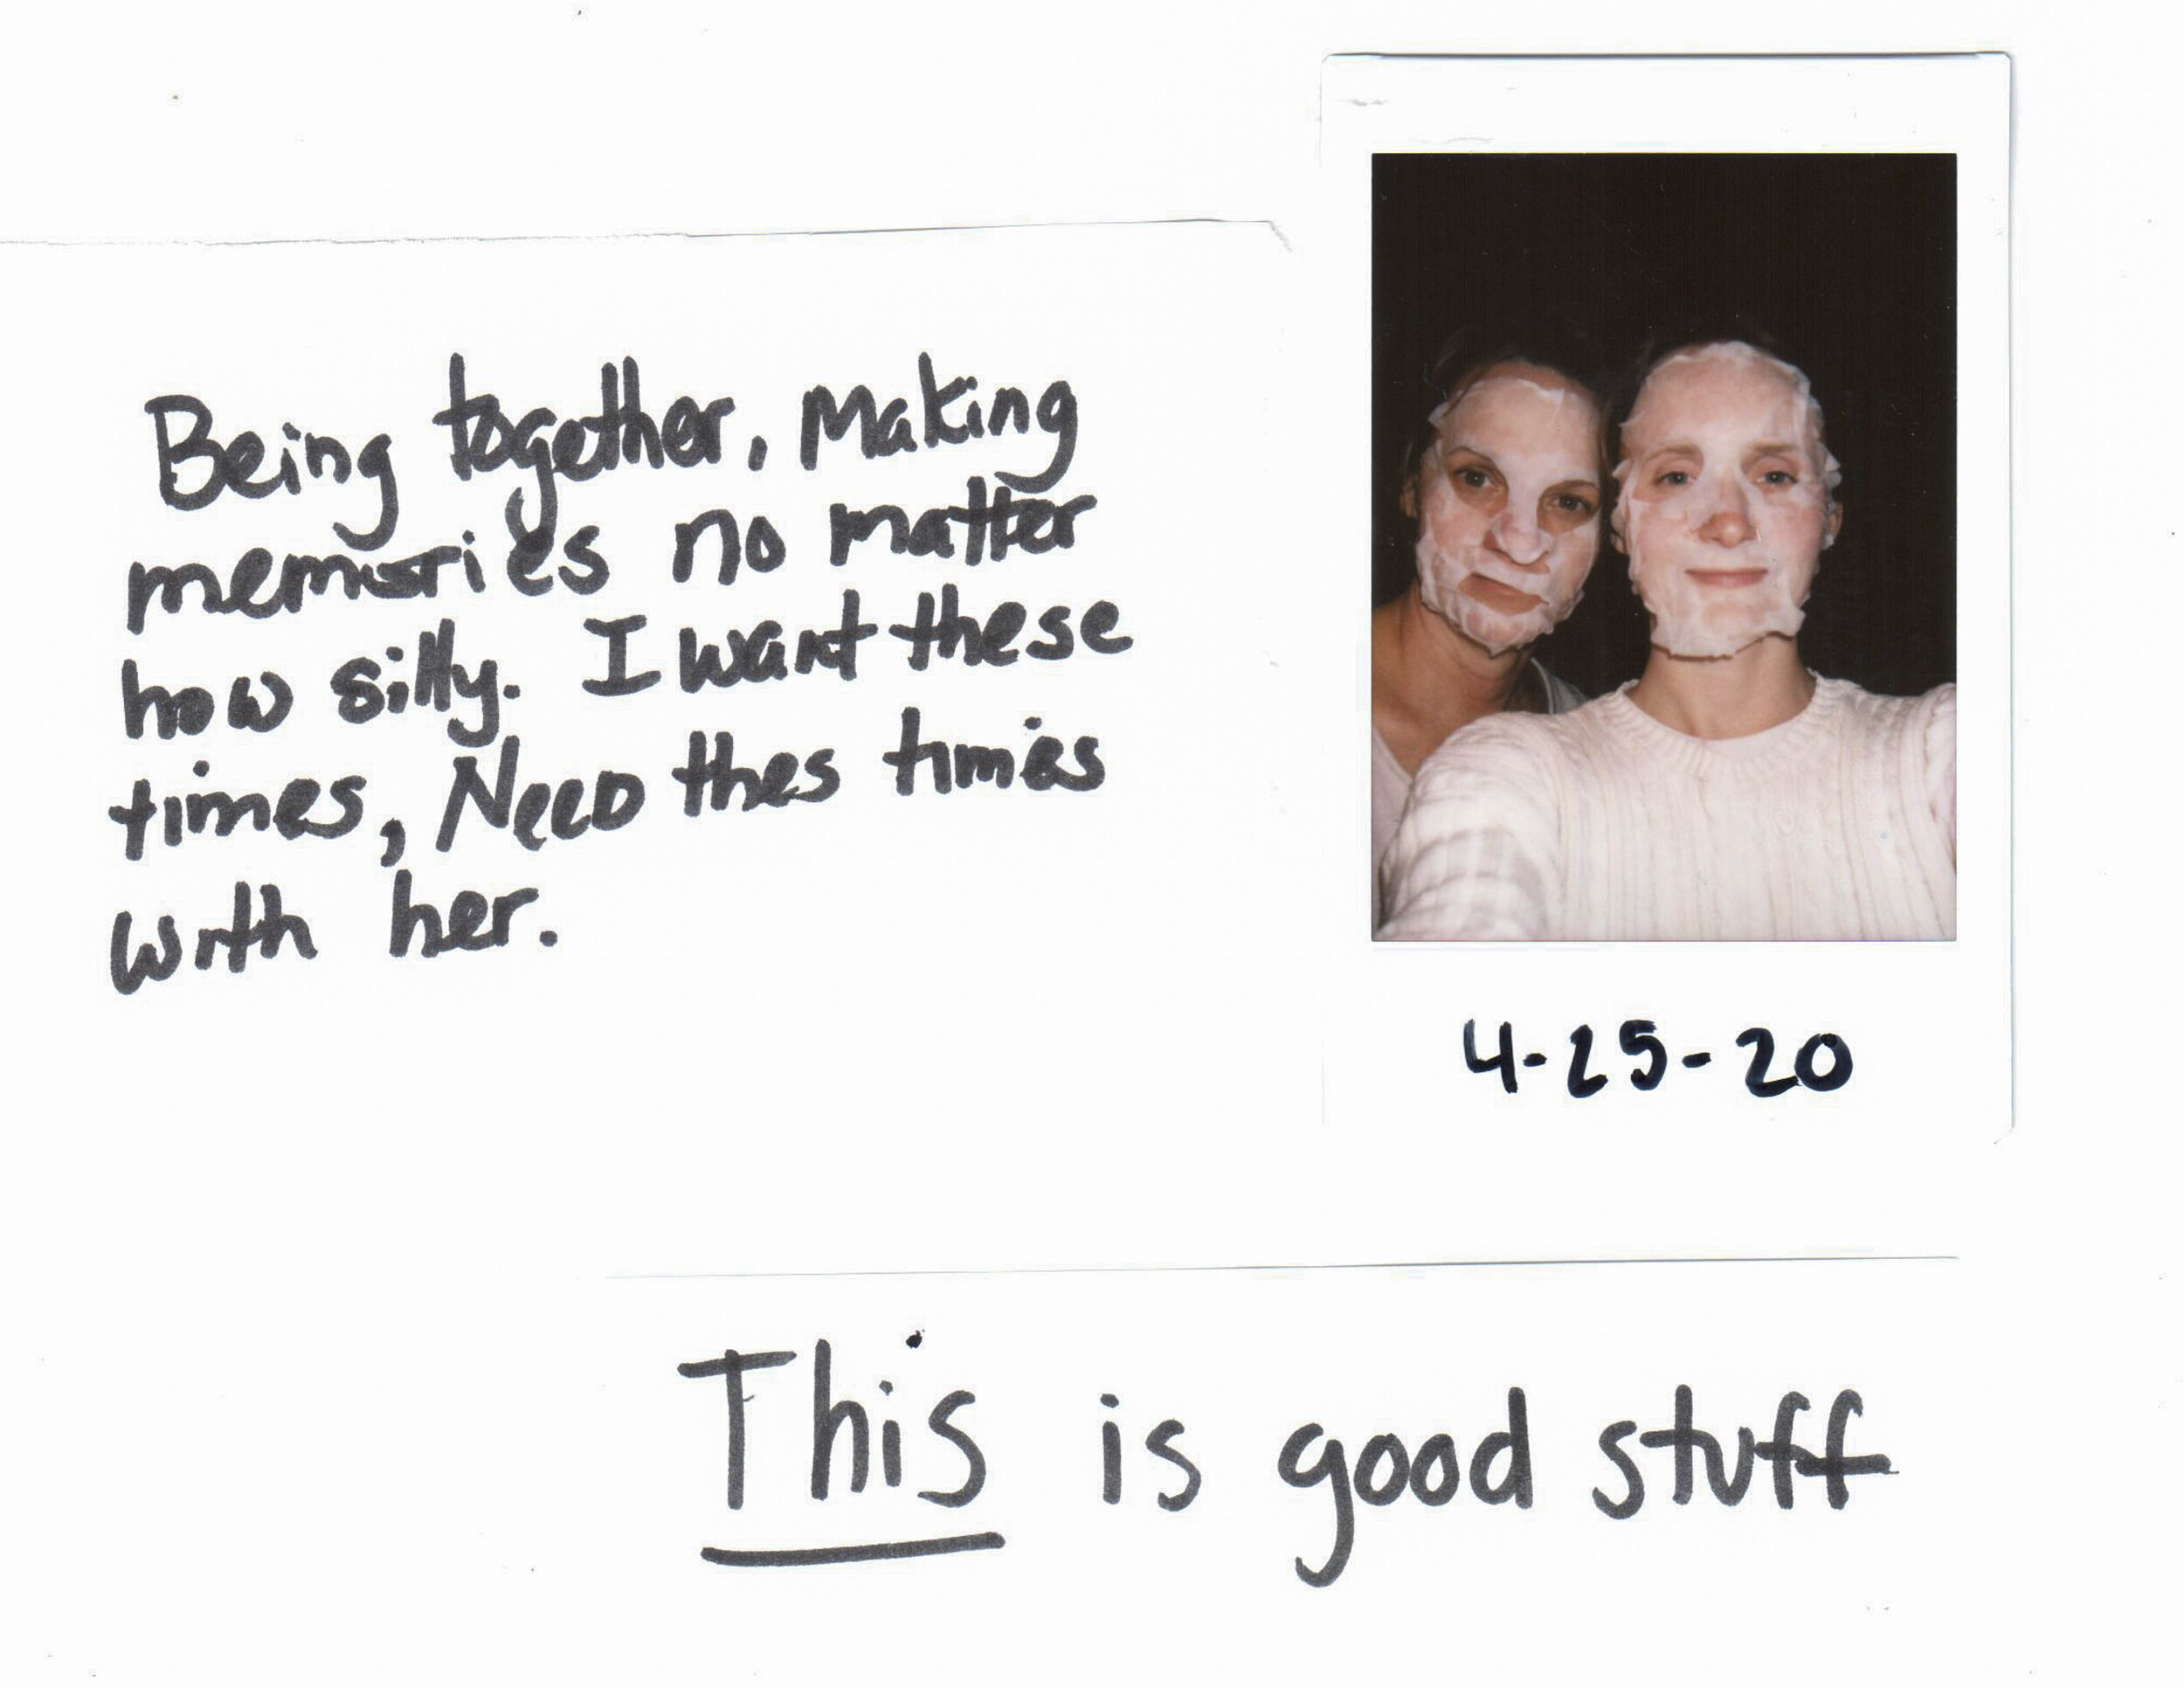 Being together, Making
memories no matter
how silly. I want these
times, Need thes times
with her.
4-25-20
This is good stuff